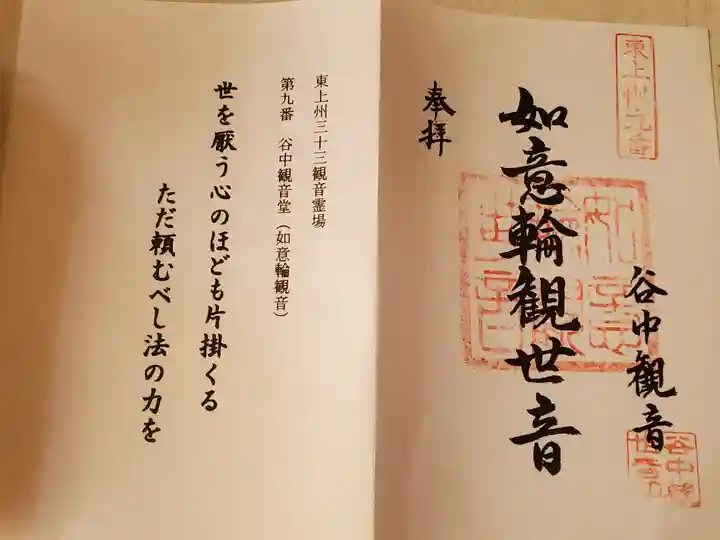 東上州九番
奉拝
如意輪観世音
谷中観音
東上州三十三観音霊場
第九番　谷中観音堂（如意輪観音）
世を厭う心のほども片掛くる
ただ頼むべし法の力を